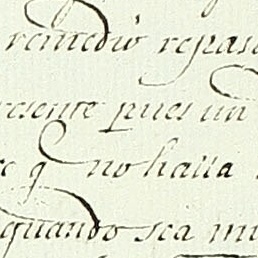 remedio repas
resente pues un
q no halla
quando sea mu